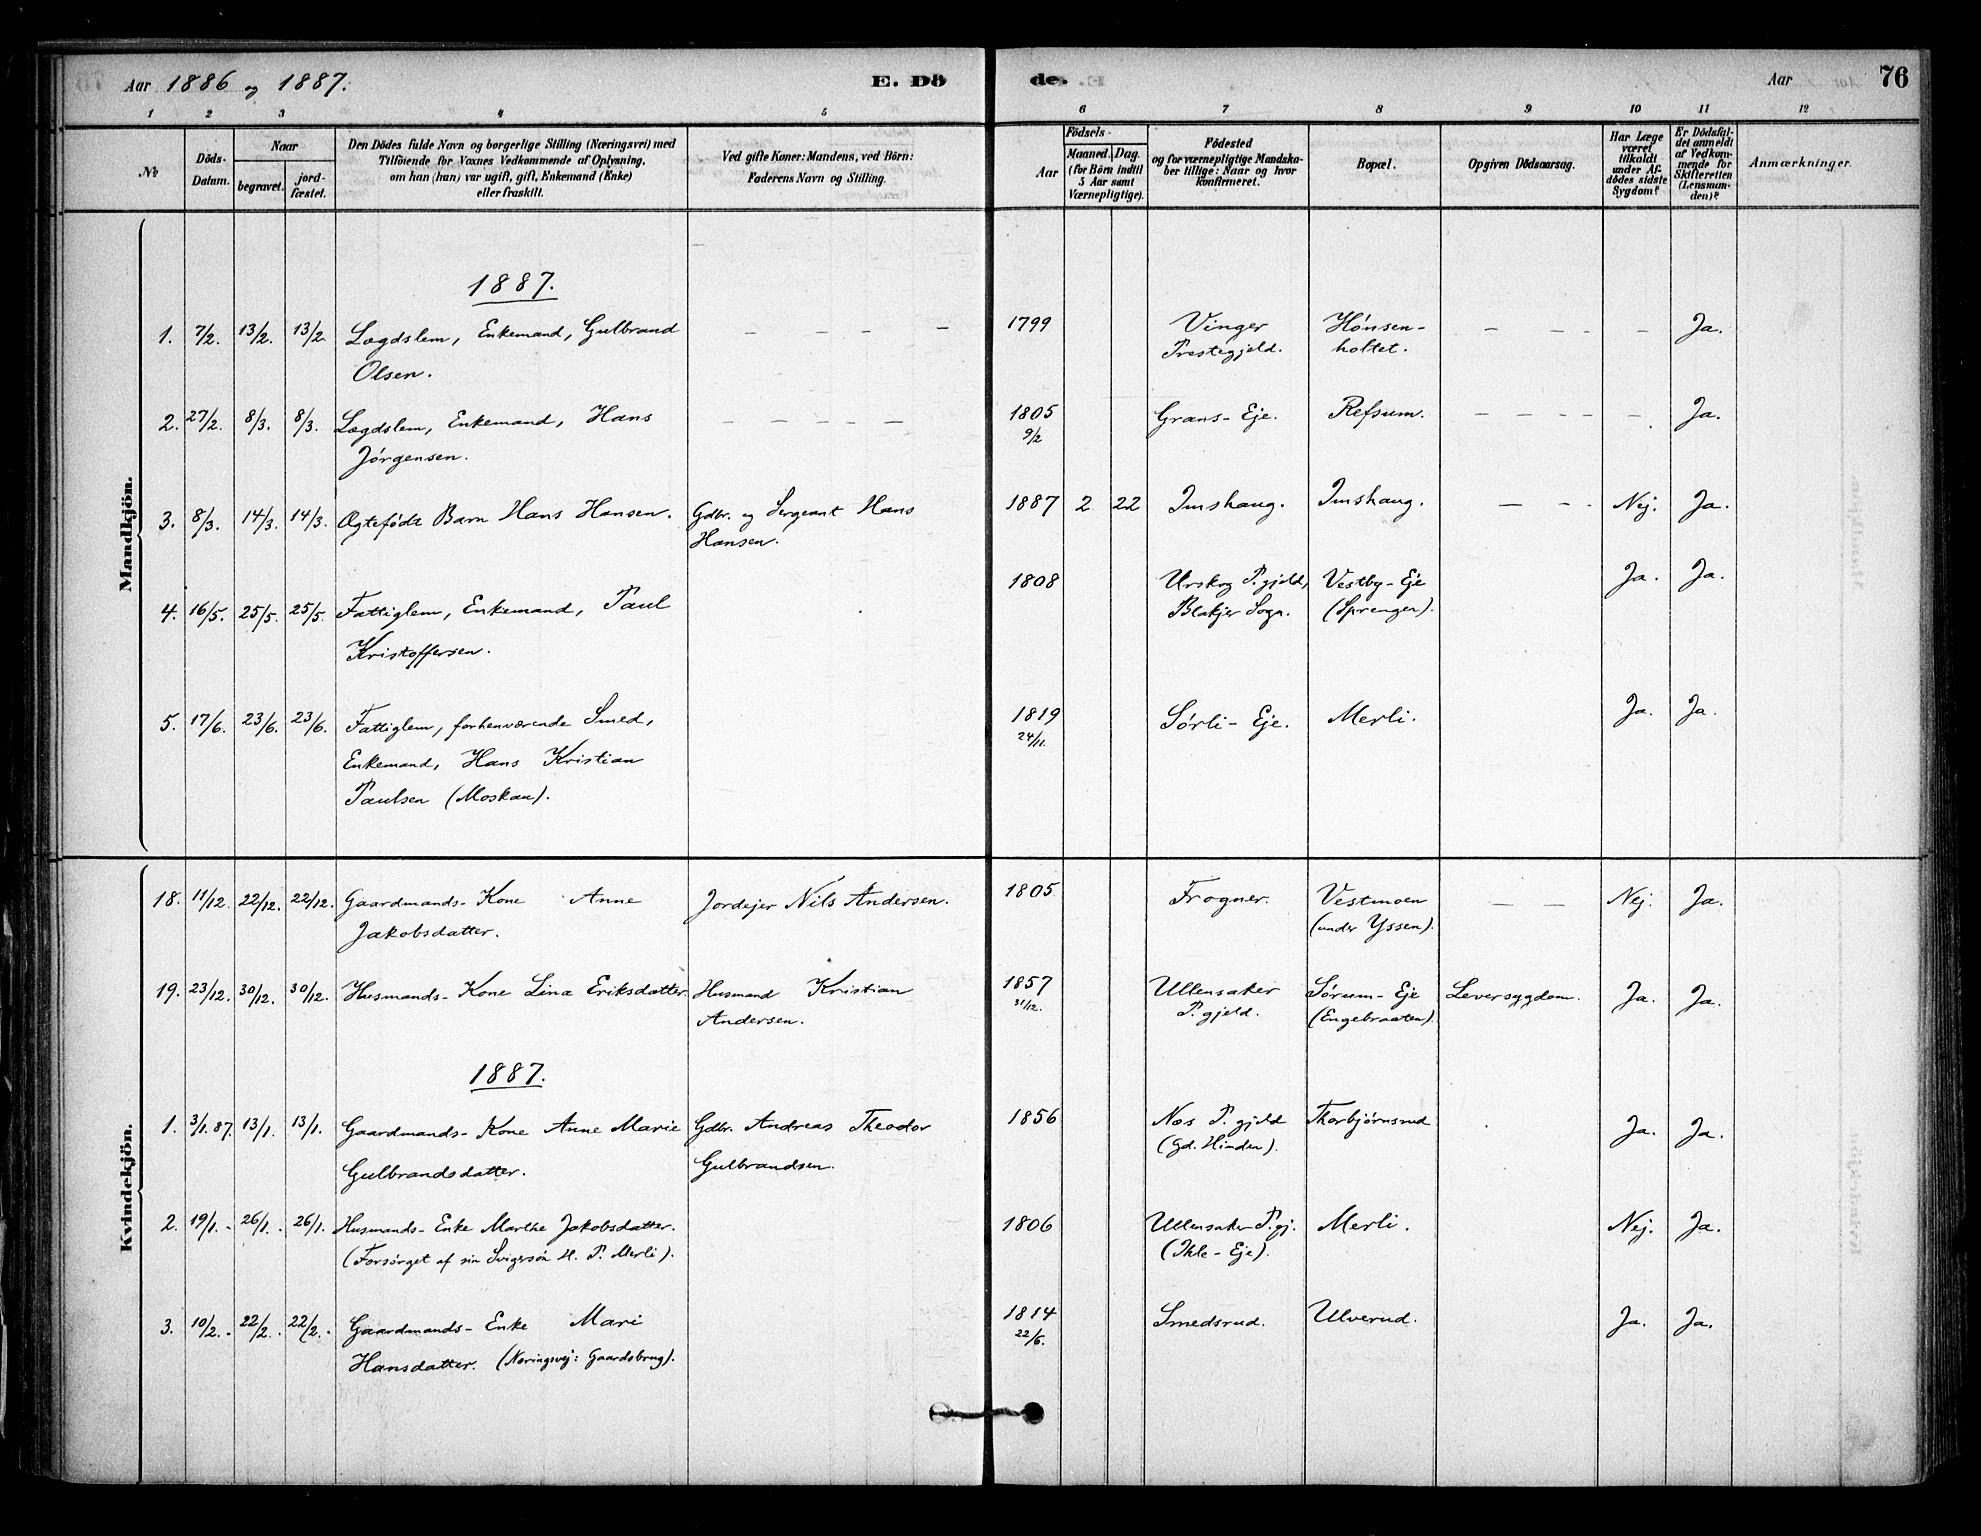 Aar 1886 og 1887. E. Dö de. Aar 76
1 2 3 4 5 6 7 8 9 10 11 12
№
Döds-Datum.
Naar
begravet. jord-fæstet.
Den Dödes fulde Navn og borgerlige Stilling (Næringsvei) med
Tilföiende for Voxnes Vedkommende af Oplysning,
om han (hun) var ugift, gift, Enkemand (Enke)
eller fraskilt.
Ved gifte Koner: Mandens, ved Börn:
Faderens Navn og Stilling.
Födsels-
Aar
Maaned. Dag.
(for Börn indtil
5 Aar samt
Værnepligtige).
Födested
og for værnepligtige Mandska-
ber tillige: Naar og hvor
konfirmeret.
Bopæl.
Opgiven Dödsaarsag.
Har Læge
været
tilkaldt
under Af-
dödes sidste
Sygdom?
Er Dödsfal-
det anmeldt
af Vedkom-
mende for
Skifteretten
(Lensman-
den)?
Anmærkninger.
Mandkjön.
1887.
1. 7/2. 13/2. 13/2. Lægdslem, Enkemand, Gulbrand — — — — 1799 Vinger Hónsen- — — — — Ja.
Olsen. Prestegjeld. holtet.
2. 27/2. 8/3. 8/3. Lægdslem, Enkemand, Hans — — — — — 1805 Grans-Eje. Refsum. — — — — — Ja.
Jórgensen. 9/2
3. 8/3. 14/3. 14/3. Ægtefódt Barn Hans Hansen. Gdbr. og Sergeant Hans 1887 2 22 Imshaug. Imshaug. — — - Nej. Ja.
Hansen.
4. 16/5. 25/5. 25/5. Fattiglem, Enkemand, Paul 1808 Urskog P.gjeld, Vestby-Eje Ja. Ja.
Kristoffersen. Blakjer Sogn. (Sprengen).
5. 17/6. 23/6. 23/6. Fattiglem, forhenværende Smed, 1819 Sórli-Eje. Merli. Ja. Ja.
Enkemand, Hans Kristian 24/11.
Paulsen (Moskau).
Kvindekjön.
18. 11/12. 22/12. 22/12. Gaardmands-Kone Anne Jordejer Nils Andersen. 1805 Frogner. Vestmoen — — Nej. Ja.
Jakobsdatter. (under Yssen).
19. 23/12. 30/12. 30/12. Husmands-Kone Lina Eriksdatter Husmand Kristian 1857 Ullensaker Sórum-Eje Leversygdom. Ja. Ja.
Andersen. 31/12. P.gjeld. (Engebraaten).
1887.
1. 3/1.87. 13/1. 13/1. Gaardmands-Kone Anne Marie Gdbr. Andreas Theodor 1856 Nes P.gjeld Thorbjórnsrud Ja. Ja.
Gulbrandsdatter. Gulbrandsen. (Gd. Hinden).
2. 19/1. 26/1. 26/1. Husmands-Enke Marthe Jakobsdatter. 1806 Ullensaker P.gj. Merli. Nej. Ja.
(Forsórget af sin Svigersón H. P. Merli). (Ihle-Eje).
3. 10/2. 22/2. 22/2. Gaardmands-Enke Mari 1814 Smedsrud. Ulverud. Ja. Ja.
Hansdatter. (Næringsvej: Gaardsbrug). 22/6.